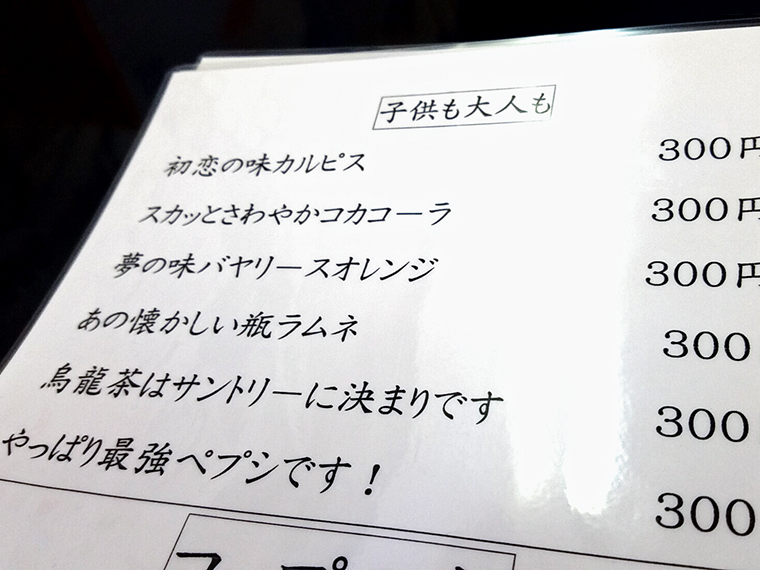 子供も大人も
初恋の味カルピス 300円
スカッとさわやかコカコーラ 300円
夢の味バヤリースオレンジ 300円
あの懐かしい瓶ラムネ 300
烏龍茶はサントリーに決まりです 300
やっぱり最強ペプシです！ 300